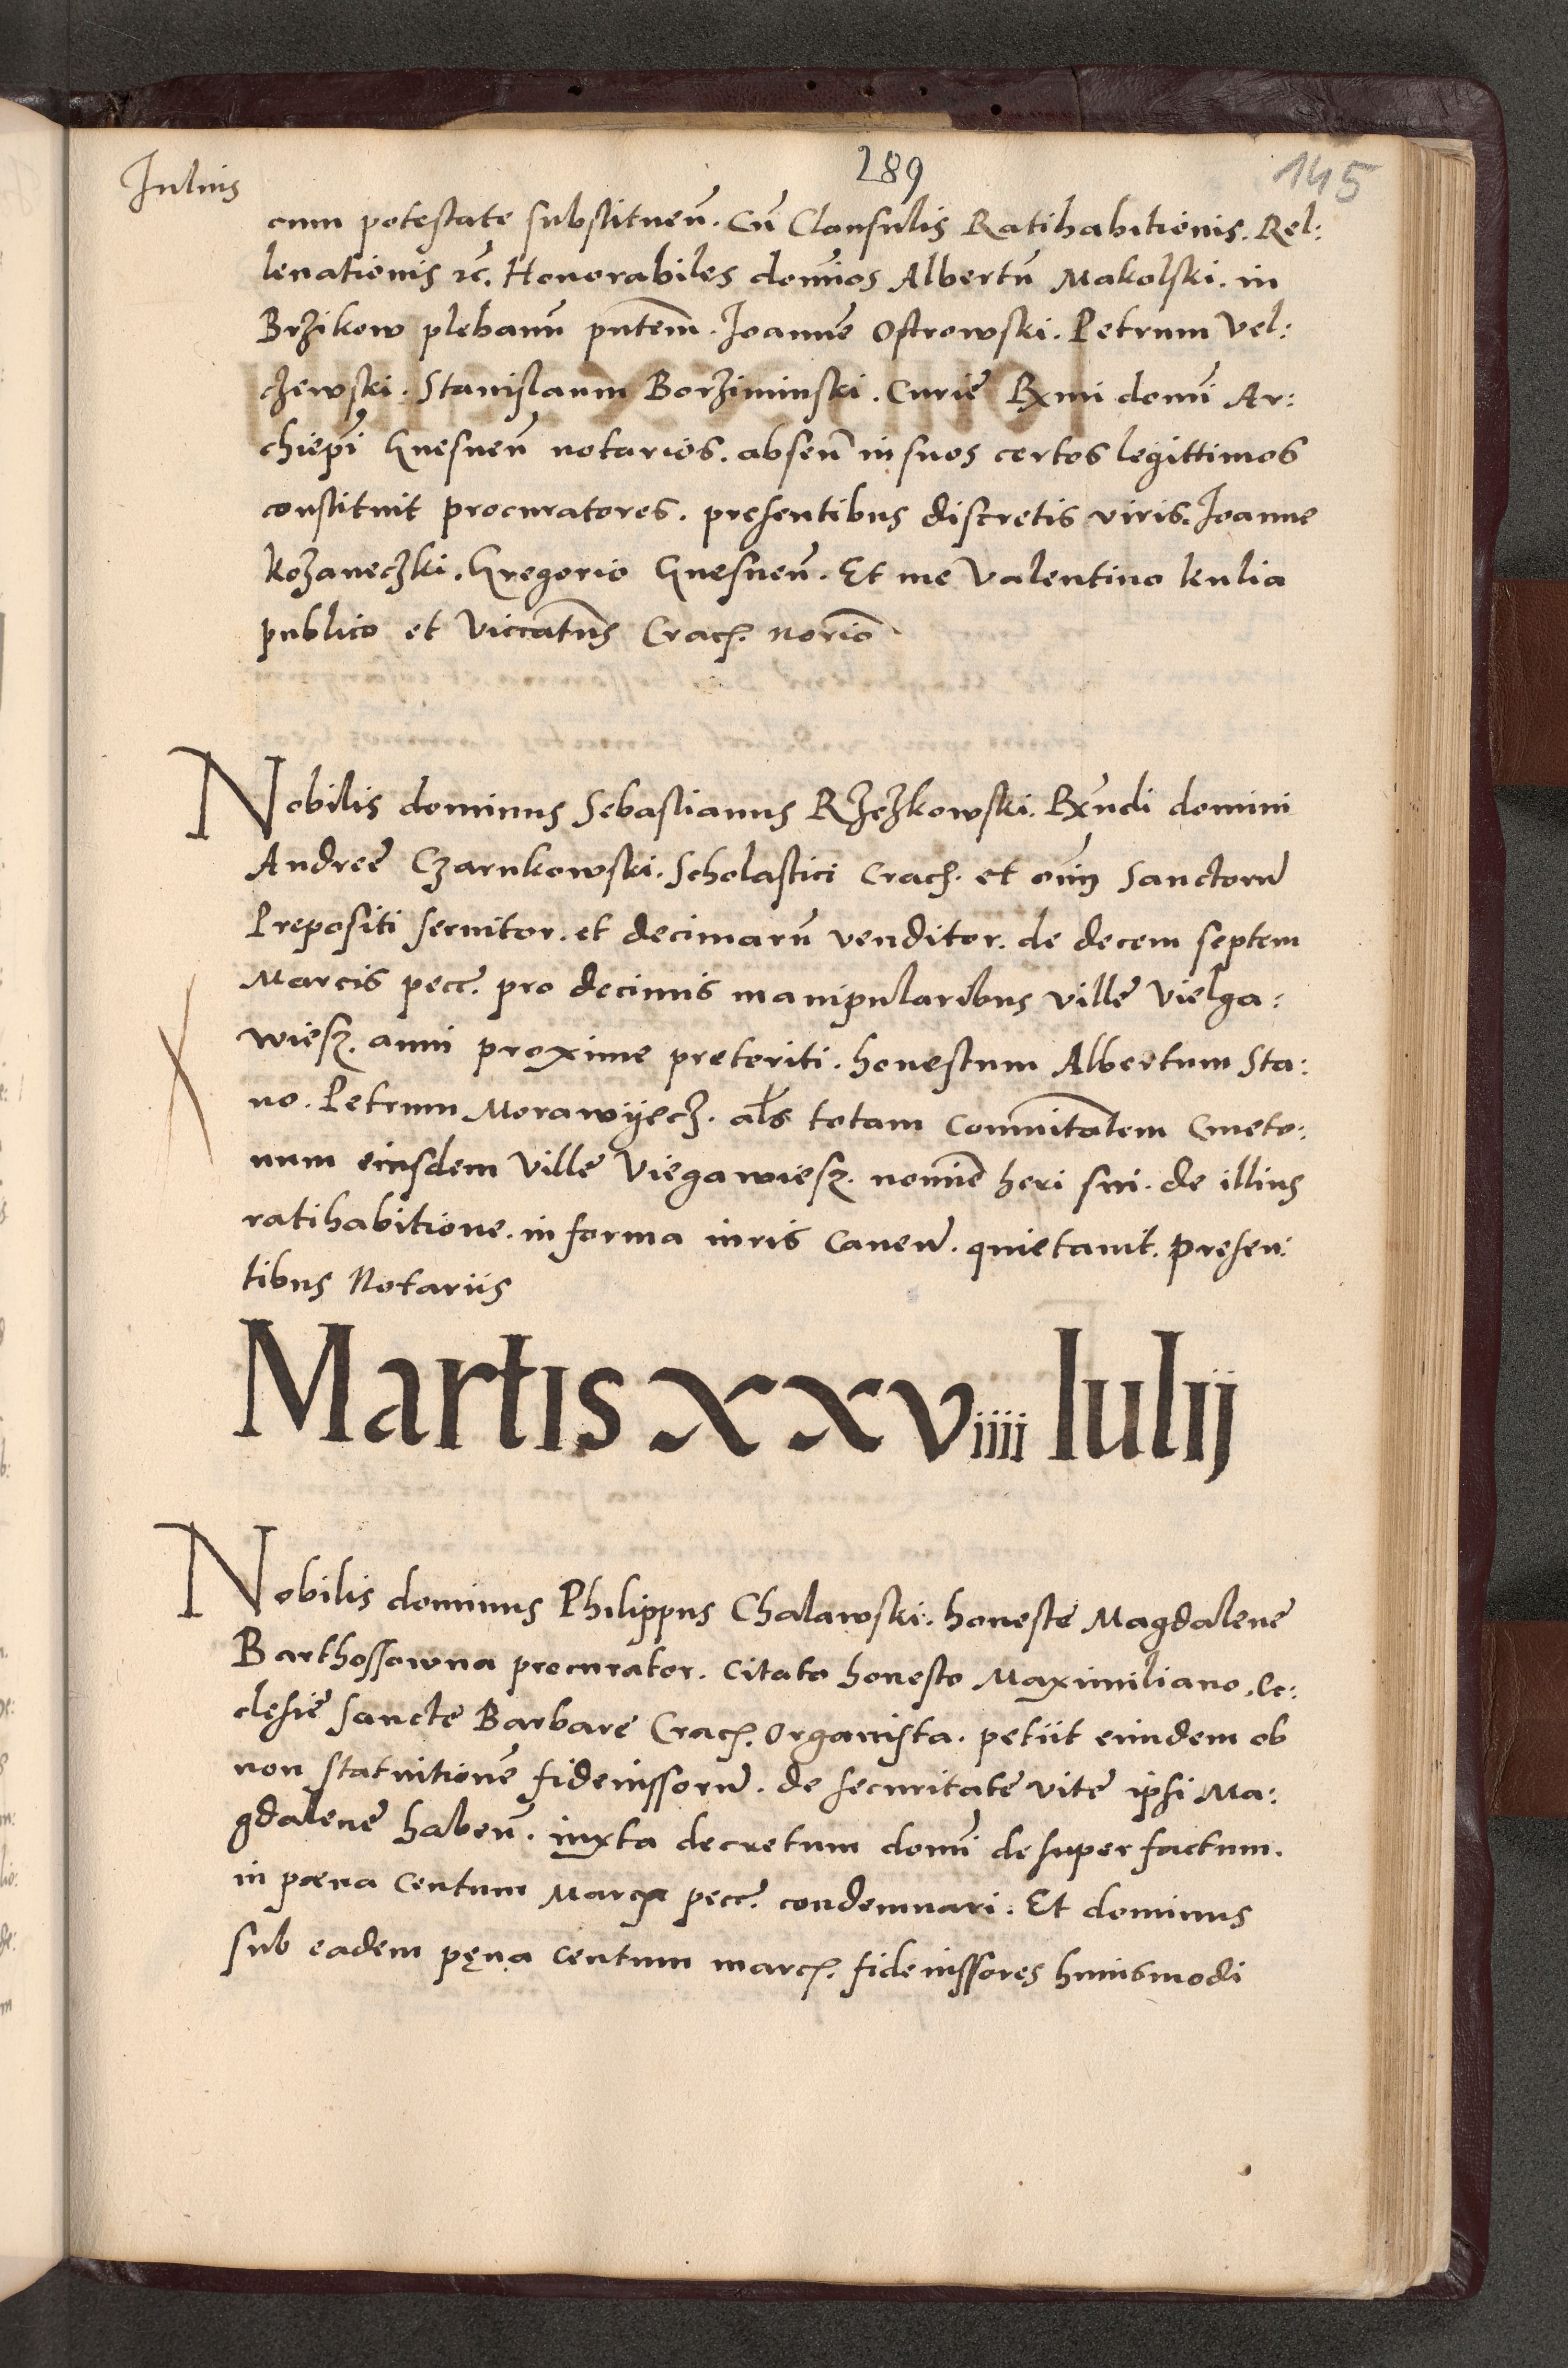 Julius
289
145
cum potestate substituen̄. Cū Clausulis Ratihabitionis. Rel:
levationis ⁊c̄. Honorabiles domīos Albertū Makolski. in
Brzikow plebanū pn̄tem̄. Joannē Ostrowski. Petrum Vel:
czewski. Stanislaum Borziminski. Curiē Rx̄mi domī Ar:
chiep̄i Gnesneñ notarios. absen̄ in suos certos legittimos
constituit procuratores. presentibus discretis viris. Joanne
Kozaneczki. Gregorio Gnesneñ. Et me Valentino Kulia
publico et Viccatūs Cracō. norīo
Nobilis dominus Sebastianus Rzezkowski. Rx̄ndi domini
Andreę Czarnkowski. Scholastici Cracō. et om̄iū Sanctorū
Prepositi servitor. et decimarū venditor. de decem septem
Marcis pecc̄. pro decimis manipularibus villę Vielga:
wiesz. anni proxime preteriti. honestum Albertum Sta:
no. Petrum Morawyecz. al̄s totam com̄unitatem Cmeto:
num eiusdem Villę Viegawiesz. nomīe heri sui. de illius
ratihabitione. in forma iuris Canen̄. quietavit. presen:
tibus Notariis
Martis XXViiii Iulij
Nobilis dominus Philippus Chalawski. honestę Magdalenę
Barthossowna procurator. Citato honesto Maximiliano. Ec:
clesię sanctę Barbarę Cracō. Organista. petiit eundem ob
non statuitionē fideiussorū. de securitate vitę ipsi Ma:
gdalenę habeñ. iuxta decretum domī desuper factum.
in poena Centum Marcę pecc̄. condemnari. Et dominus
sub eadem pęna centum marcō. fideiussores huiusmodi